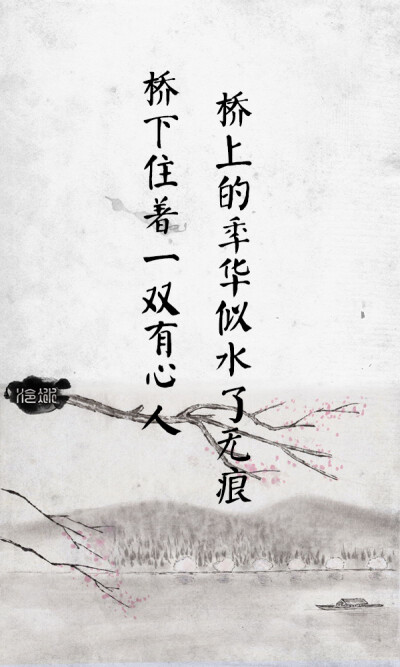 桥上的年华似水了无痕
桥下住着一双有心人